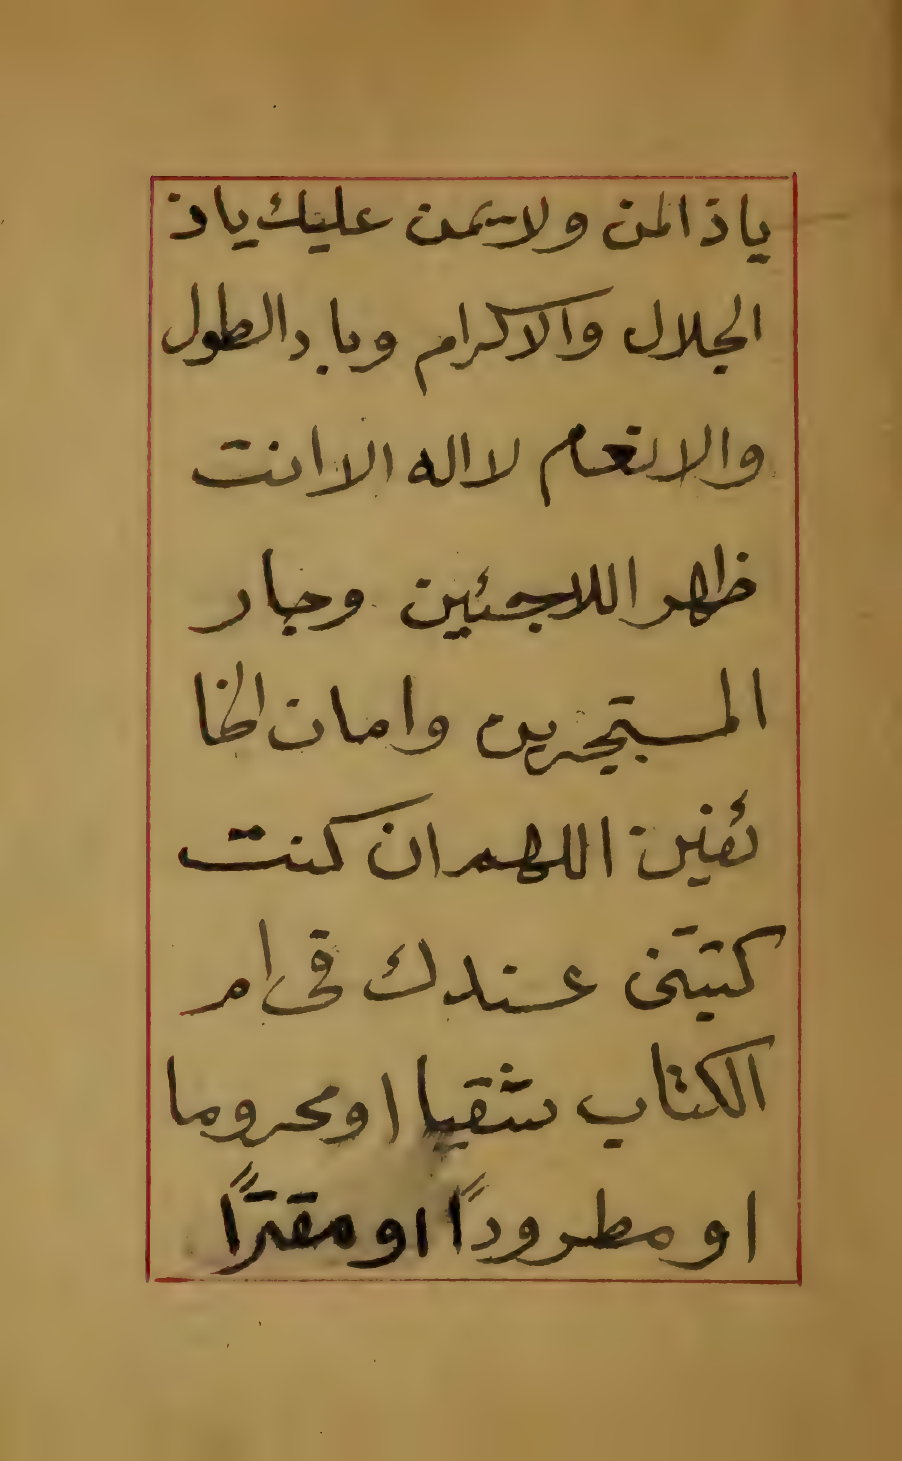 ياذالمن ولايمن عليك ياذ
الجلال والاكرام وياذالطول
والانعام لااله الاانت
ظهر اللاجئين وجار
المستجيرين وامان الخا
ئفين اللهم ان كنت
كتبتنى عندك فى ام
الكتاب شقيا اومحروما
او مطروداً اومقتراً